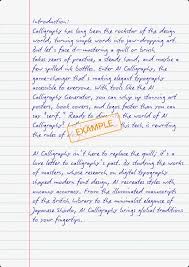 Introduction:
Calligraphy has long been the rockstar of the design
world, turning simple words into jaw-dropping art.
But let's face it—mastering a quill or brush
takes years of practice, a steady hand, and maybe a
few spilled bottles. Enter AI Calligraphy, the
game-changer that's making elegant typography
accessible to everyone. With tools like the AI
Calligraphy Generator, you can whip up stunning art
posters, book covers, and logos faster than you can
say "serif." Ready to dive the world of AI
Calligraphy? this tech is rewriting
the rules of
EXAMPLE
AI Calligraphy isn't here to replace the quill; it's a
love letter to calligraphy's past. By studying the works
of masters, whose research on digital typography
shaped modern font design, AI recreates styles with
uncanny accuracy. From the illuminated manuscripts
of the British Library to the minimalist elegance of
Japanese Shodo, AI Calligraphy brings global traditions
to your fingertips.